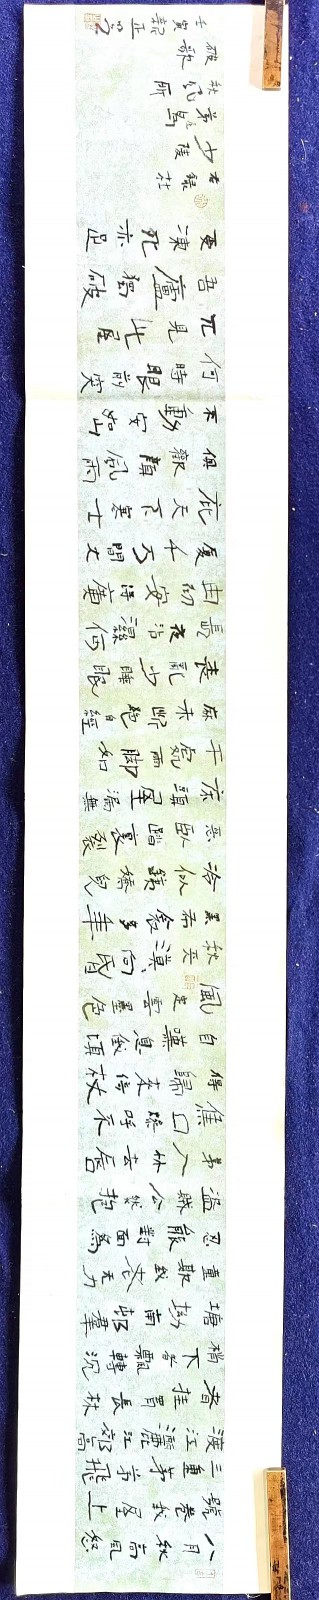 八月秋高風怒
號卷我屋上
三重茅飛
渡江灑江郊高
者挂罥長林
梢下者飄轉沉
塘坳南邨羣
童欺我老无力
忍能對面為
盜賊公然抱
茅入林去唇
焦口燥呼不
得歸來倚杖
自嘆息俄頃
風定雲墨色
秋天漠向昏
黑布衾多年
冷似鐵嬌兒
惡臥踏裏裂
床頭屋漏無
干處雨脚如
麻未斷絕自經
喪亂少睡眠
長夜沾溼何
由徹安得廣
厦千万間大
庇天下寒士
俱歡顏風雨
不動安如山
何時眼前突
兀見此屋
吾廬獨破
受凍死亦足
右録杜
少陵
茅屋為
秋風所
破歌
壬寅